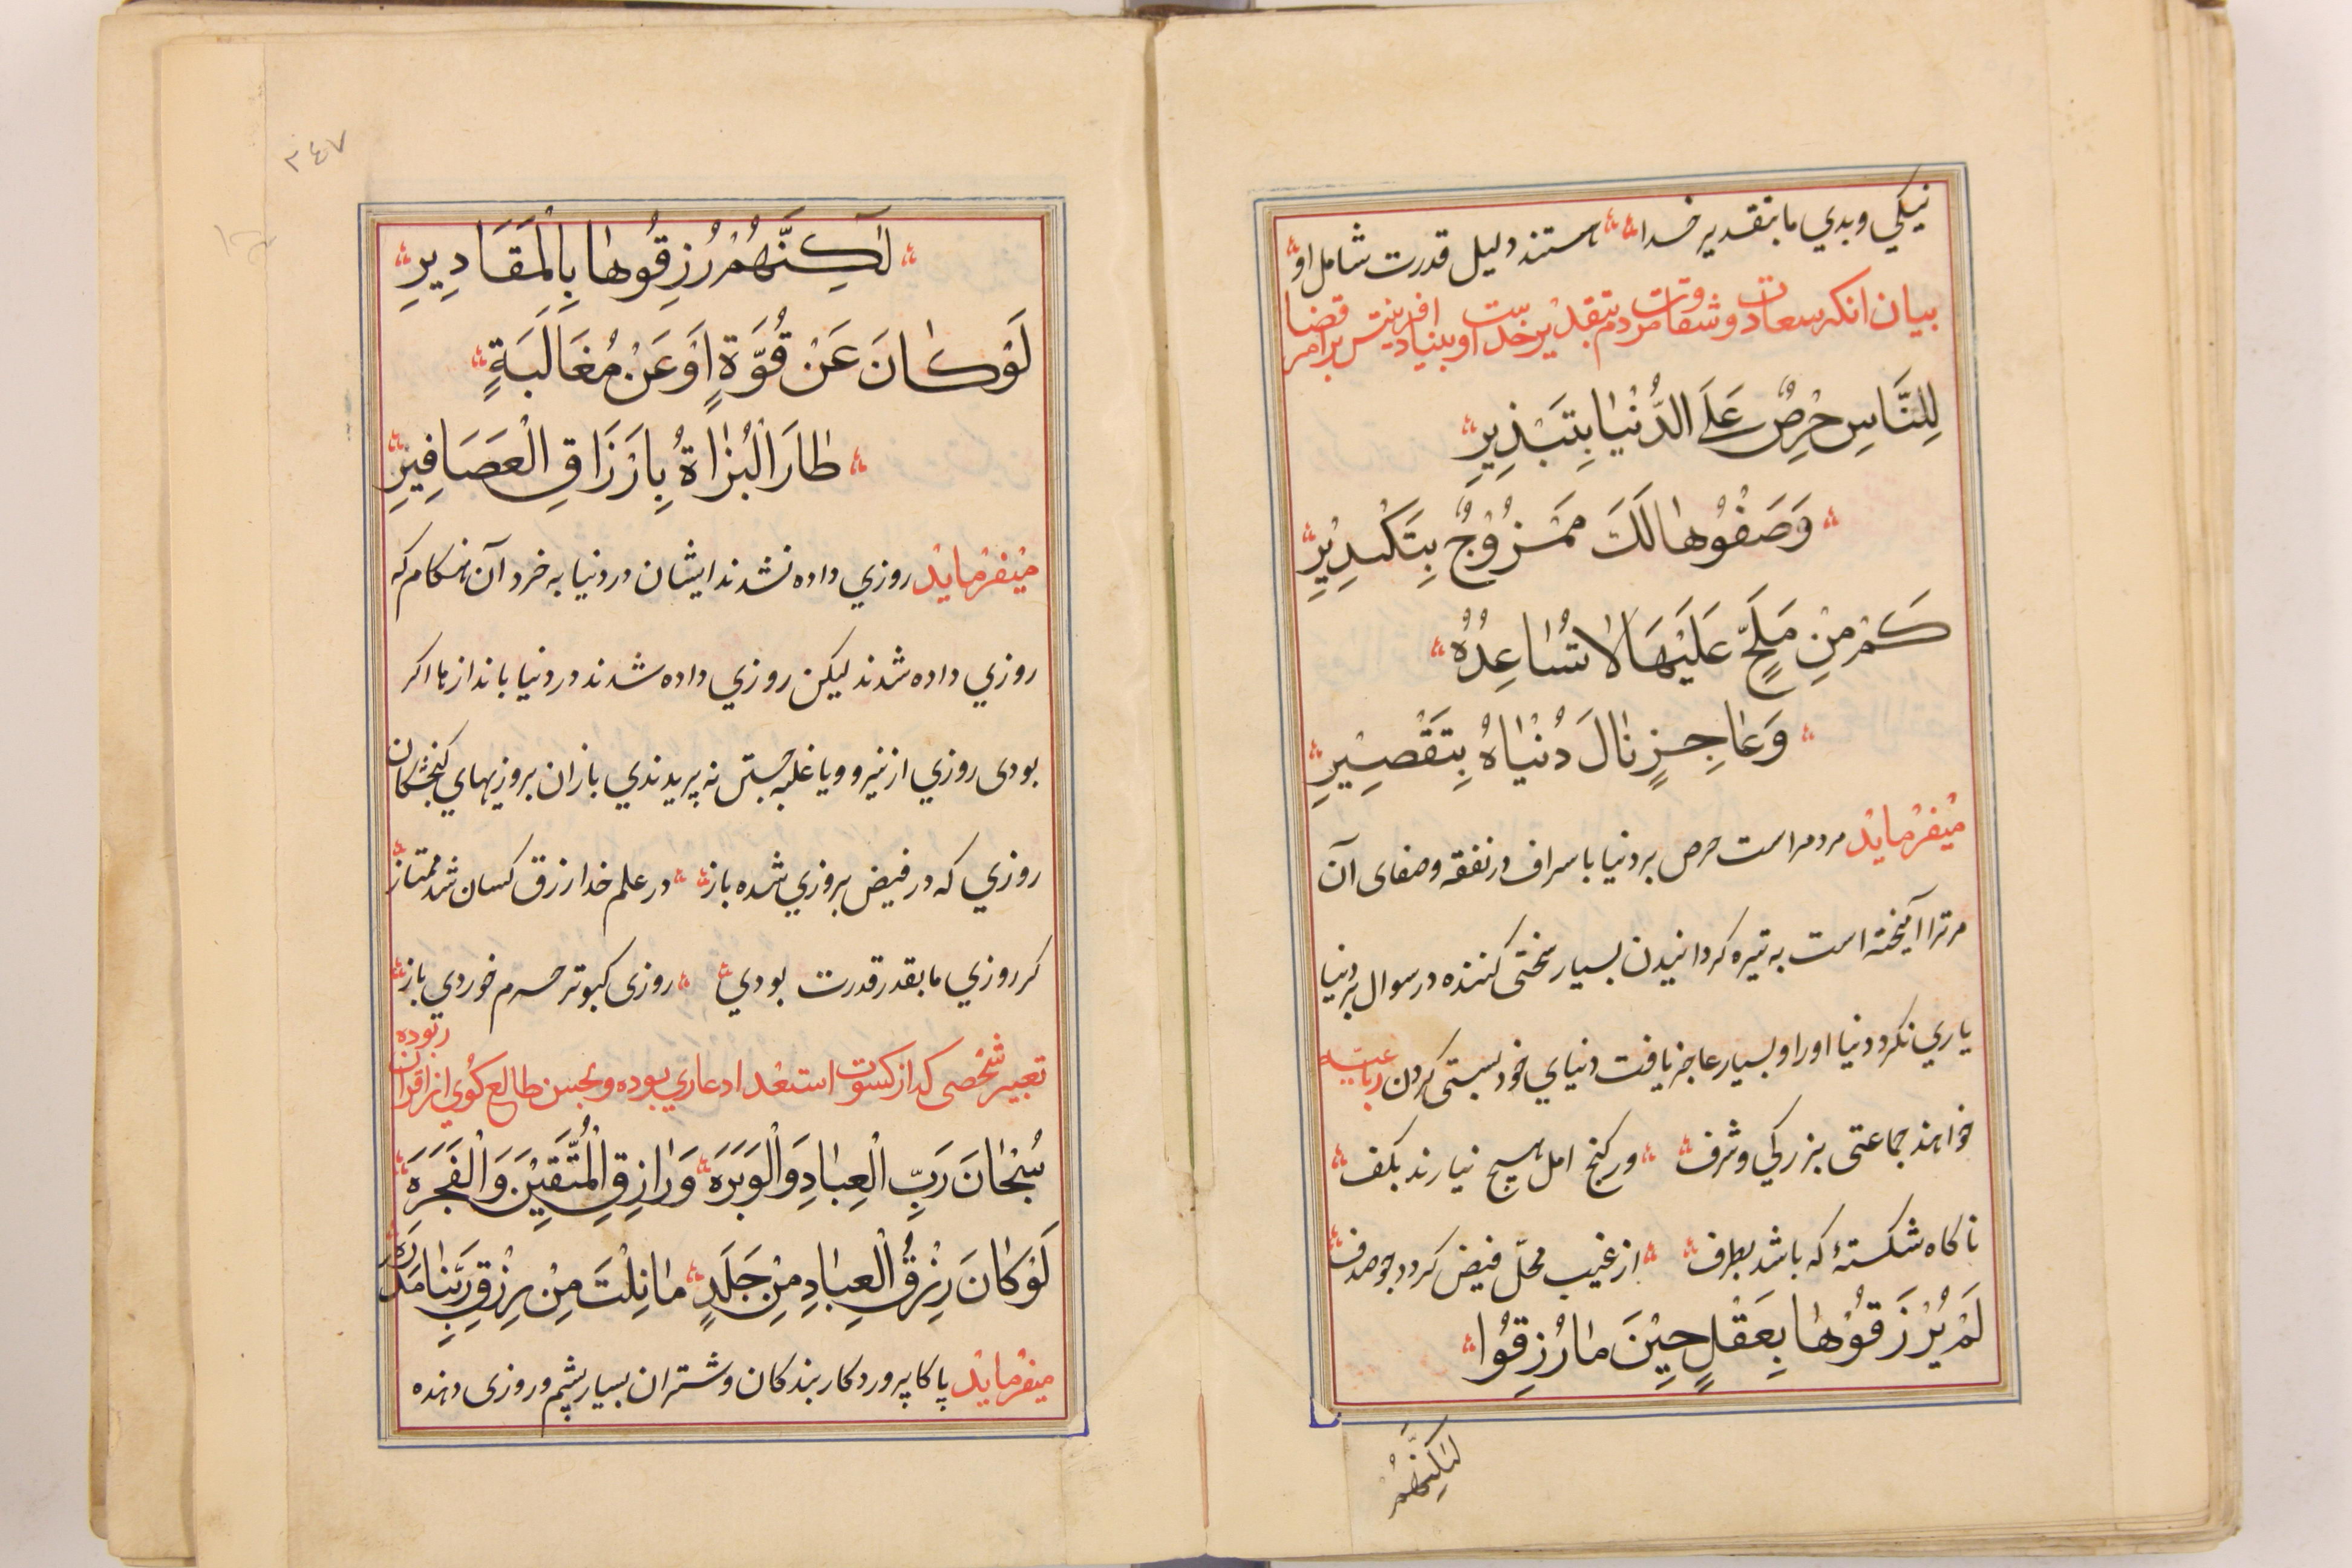 نیکي و بدي ما بتقدیر خدا هستند دلیل قدرت شامل او
بیان انکه سعادت و شقاوت مردم بتقدیر خداست و بنیاد افرینش بر امر قضا
لِلنَّاسِ حِرْصٌ عَلَی الدُّنْیٰا بِتَبْذِیرِ
وَصَفْوُهٰا لَکَ مَمْزُوْجٌ بِتَکْدِیْرِ
کَمْ مِنْ مُلِحٍّ عَلَیْهَا لاٰ تُسٰاعِدُهُ
وَعٰاجِزٍ نٰالَ دُنْیٰاهُ بِتَقْصِیْرِ
میفرماید مردمراست حرص بر دنیا باسراف در نفقه و صفای آن
مر ترا آمیخته است به تیره کردانیدن بسیار سختی کننده در سوال بر دنیا
یاري نکرد دنیا او را و بسیار عاجز یافت دنیاي خود بسستی کردن رباعیه
خواهند جماعتی بزرکي و شرف ور کنج امل هیچ نیارند بکف
ناکاه شکستهٔ که باشد بطرف از غیب محلّ فیض کردد چو صدف
لَمْ یُرْزَقُوْهٰا بِعَقْلٍ حِیْنَ مٰا رُزِقُوْا
لٰکِنَّهُمْ
٣٤٧
لٰکِنَّهُمْ رُزِقُوهٰا بِالْمَقَادِیرِ
لَوْ کٰانَ عَنْ قُوَّةٍ اَوْ عَنْ مُغَالَبَةٍ
طٰارَ الْبُزٰاةُ بِاَرْزَاقِ الْعَصَافِیْرِ
میفرماید روزي داده نشدند ایشان در دنیا به خرد آن هنکام که
روزي داده شدند لیکن روزي داده شدند در دنیا باندازها اکر
بودی روزي از نیرو و یا غلبه جستن نه پریدندي بازان بروزیهاي کنجشکان
روزي که در فیض بروزي شده باز در علم خدا رزق کسان شد ممتاز
کر روزي ما بقدر قدرت بودي روزی کبوتر حرم خوردي باز
تعبیر شخصی که از کسوت استعداد عاري بوده و بحسن طالع کوي از اقران ربوده
سُبْحٰانَ رَبِّ الْعِبٰادِ وَالْوَبَرَهْ وَرٰازِقِ الْمُتَّقِیْنَ وَالْفَجَرَهْ
لَوْ کٰانَ رِزْقُ الْعِبٰادِ مِنْ جَلَدٍ مٰا نِلْتَ مِنْ رِزْقِ رَبِّنٰا مَدَرَهْ
میفرماید پاکا پروردکار بندکان و شتران بسیار پشم و روزی دهنده